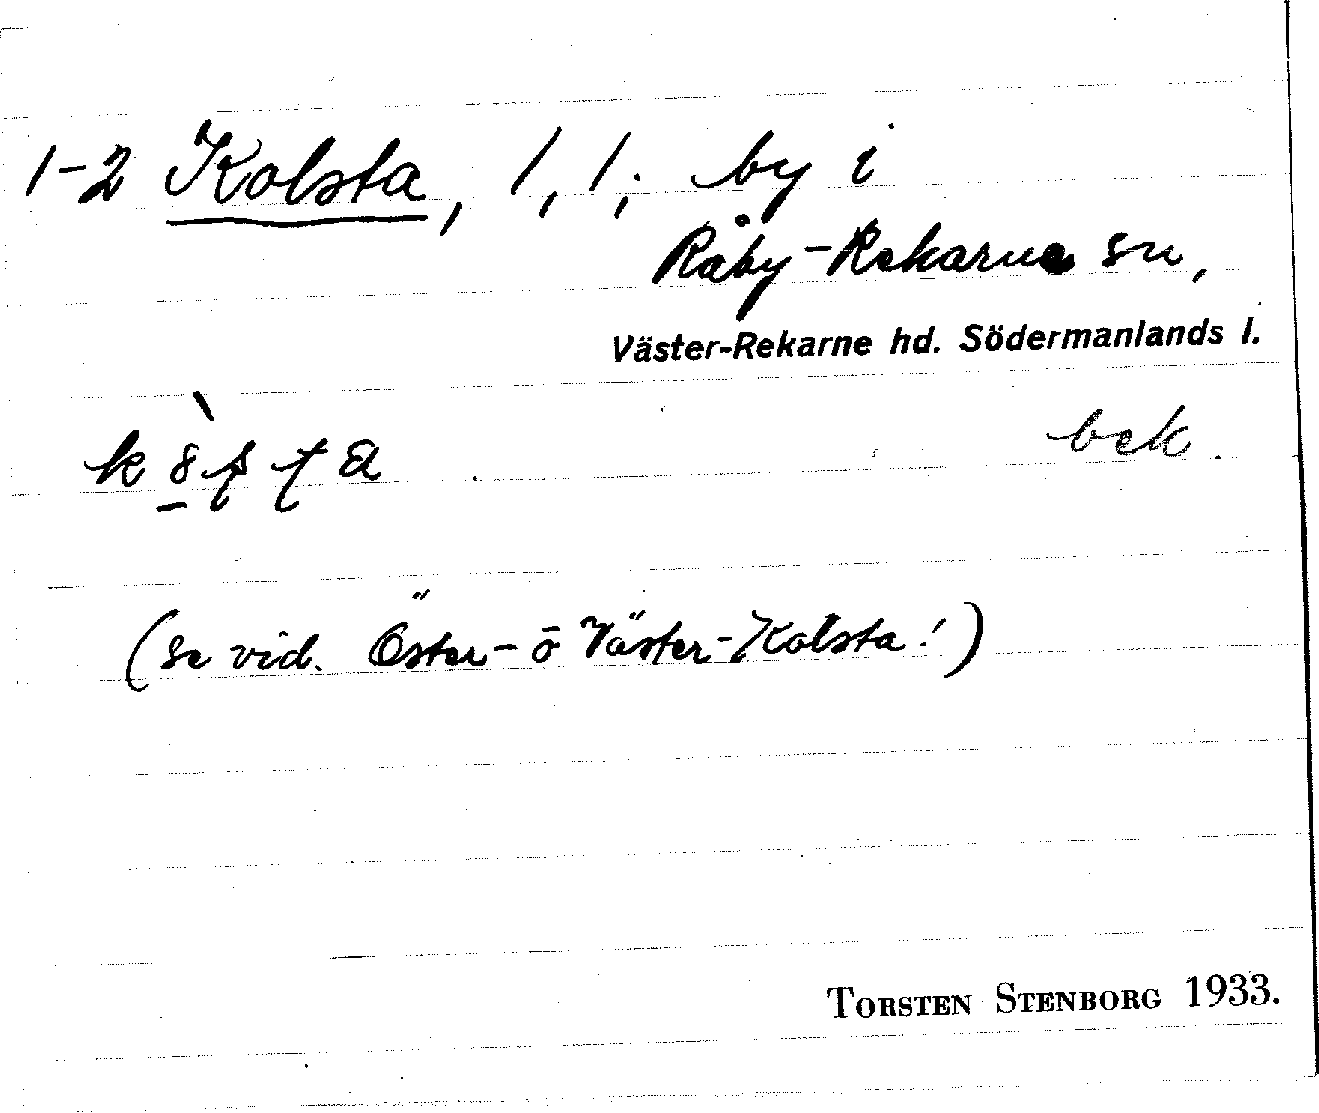 1-2 Kolsta, 1, 1; by i
Råby-Rekarne sn,
Väster-Rekarne hd. Södermanlands l.
bek.
(se vid. Öster- o Väster-Kolsta!)
TORSTEN STENBORG 1933.